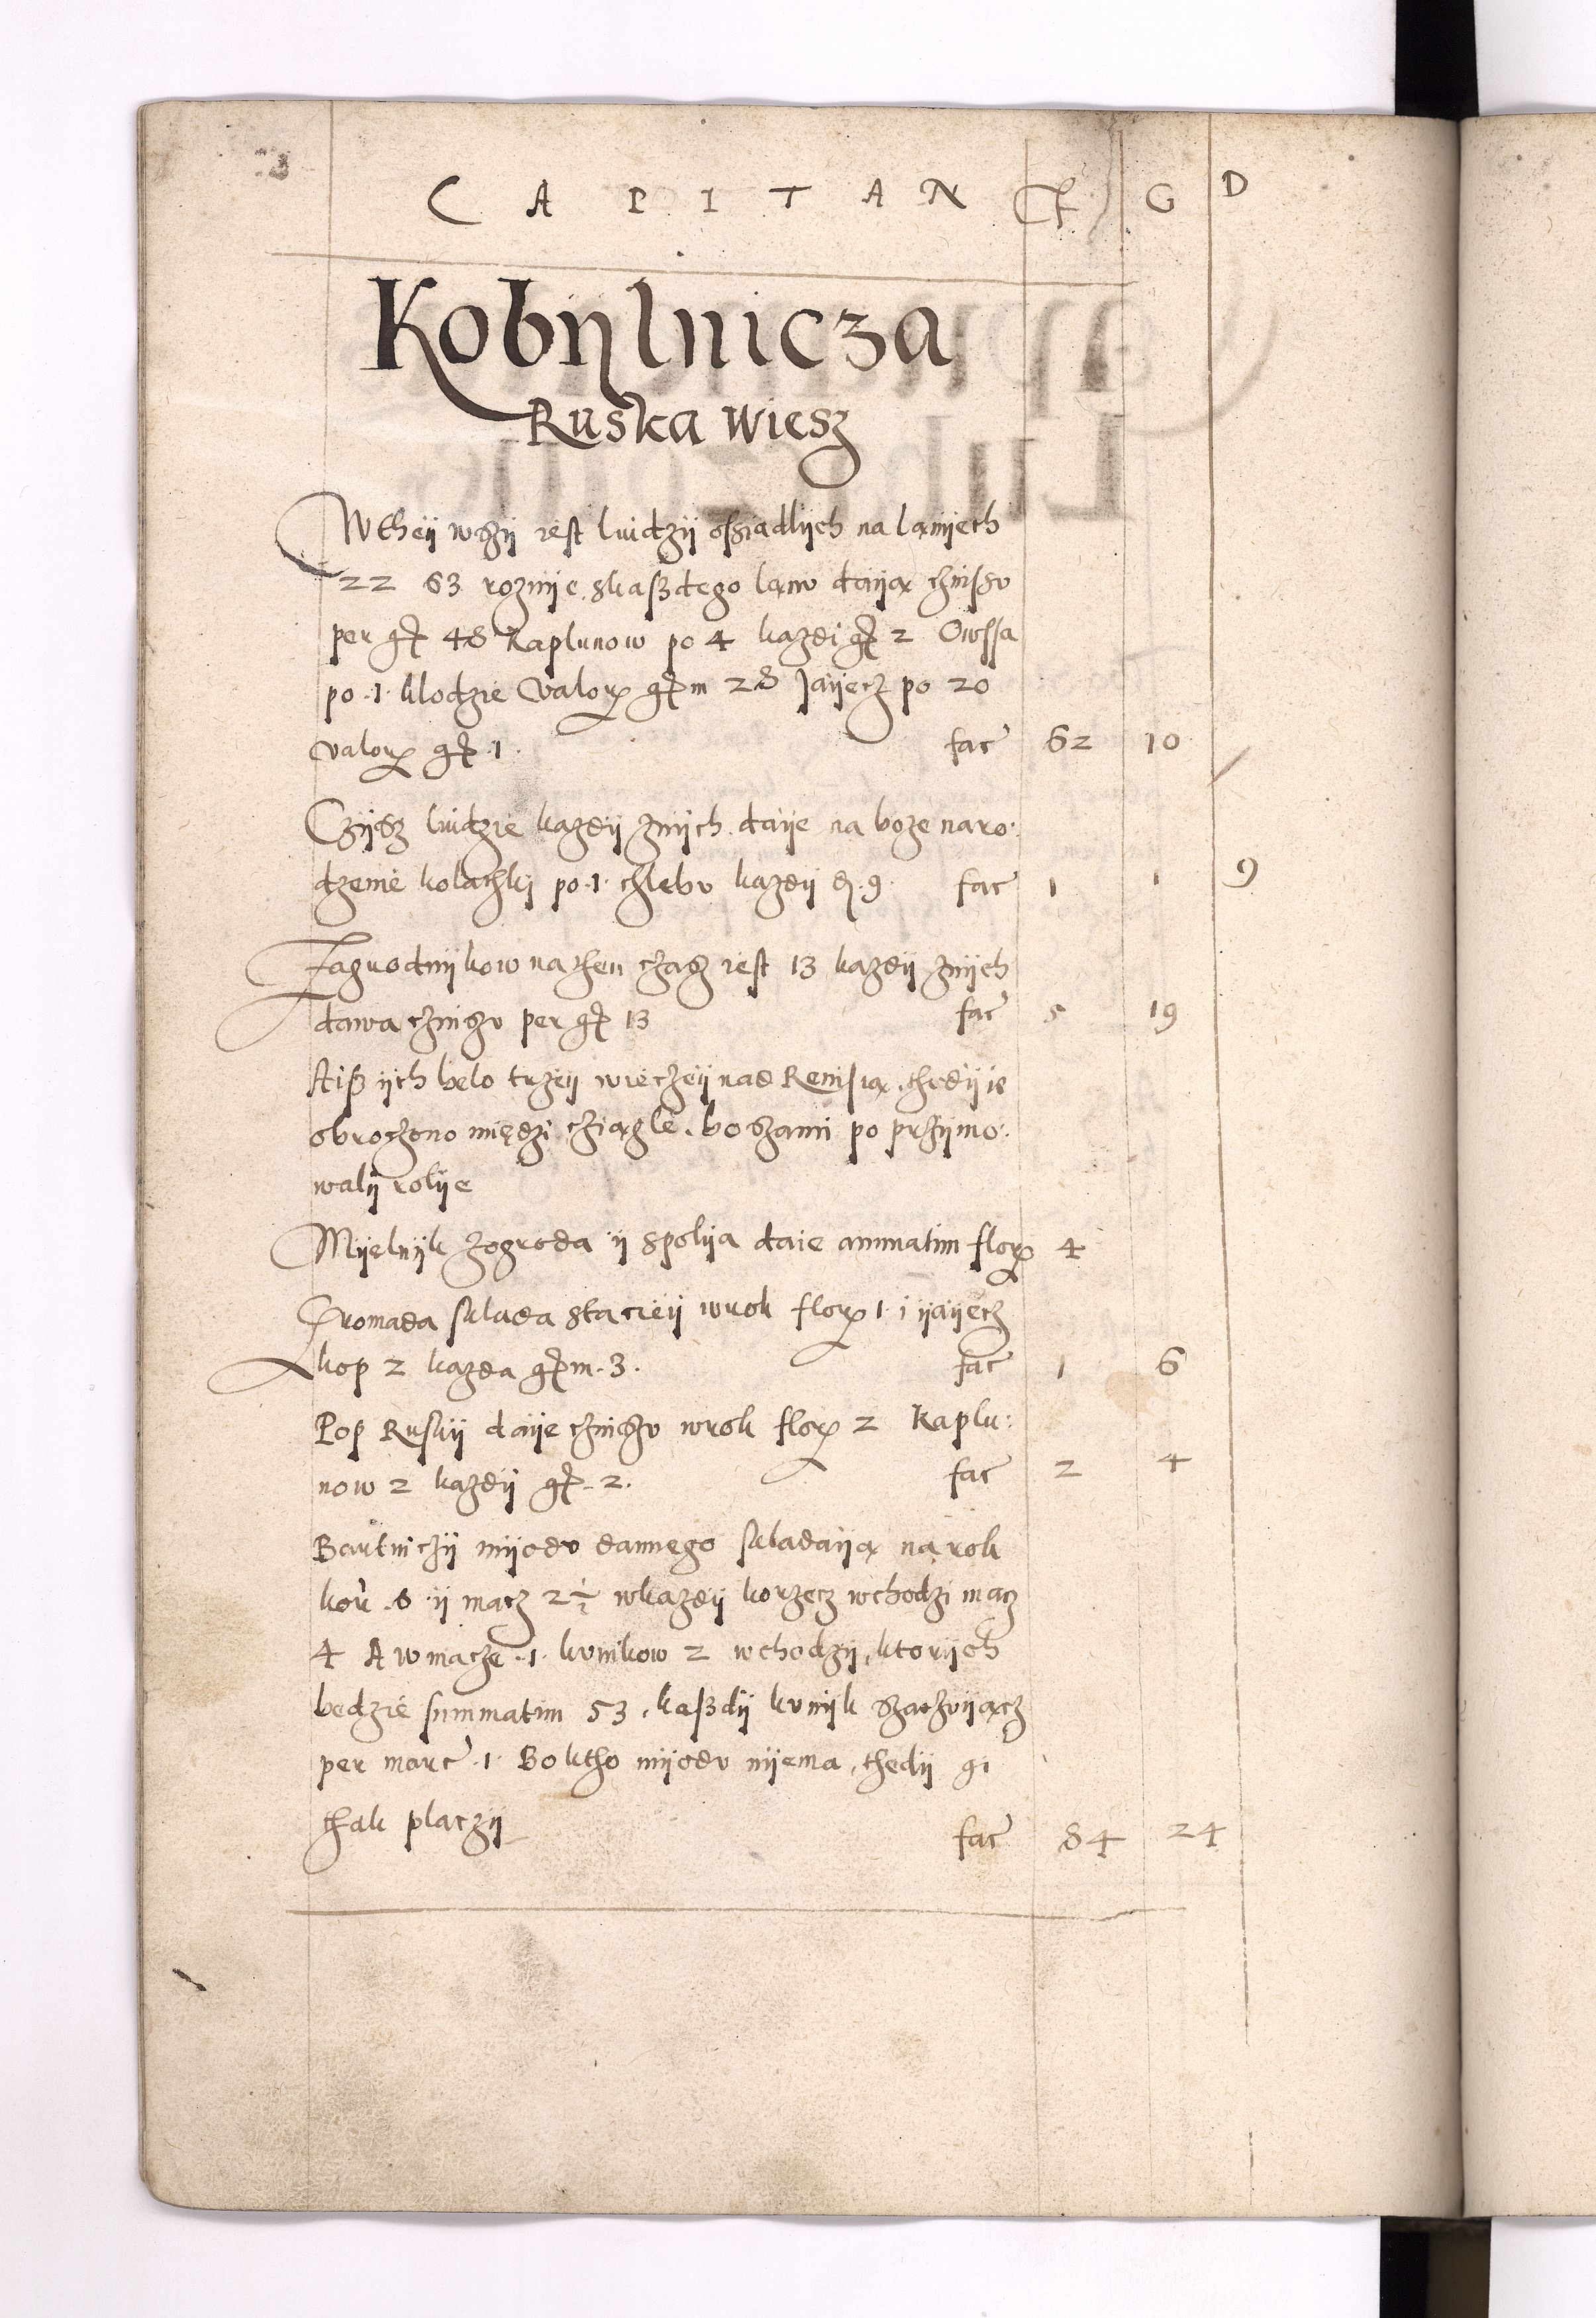 CAPITAN F G D
Kobylnicza
Ruska wiesz
W they wszy iest ludzy ossiadlych na lanyech
22 63 roznye skaßdego lanu dayą czinssu
per gr 48 Kaplunow po 4 kazdi gr 2 Owssa
po 1 klodzie valor gr m 28 Jayecz po 20
valor gr 1. fac 62 10
Czysz ludzie kazdy znych daye na boze naro:
dzenie kolaczki po 1 chlebu kazdy d. 9 fac 1 1 9
Zagrodnykow na then czasz iest 13 kazdy znych
dawa czinszu per gr 13 fac 5 19
Aiß ych belo trzey wieczey nad Remisią, thedy ie
obroczono między cziągle, bo szami po przymo:
waly rolye
Myelnyk zogroda y s polya daie annuatim flor 4
Gromada sklada staciey w rok flor 1 i yayecz
kop 2 kazda gr m 3. fac 1 6
Pop Rusky daye czinszu w rok flor 2 Kaplu:
now 2 kazdy gr 2. fac 2 4
Bartniczy myodu dannego skladayą na rok
kor 6 y macz 2 1/2 w kazdy korzecz wchodzi macz
4 A w macze 1 kunikow 2 wchodzy, ktorych
bedzie summatim 53, kaßdy kunyk szaczuyącz
per marc 1 Bo ktho myodu nyema, thedy gi
thak placzy fac 84 24